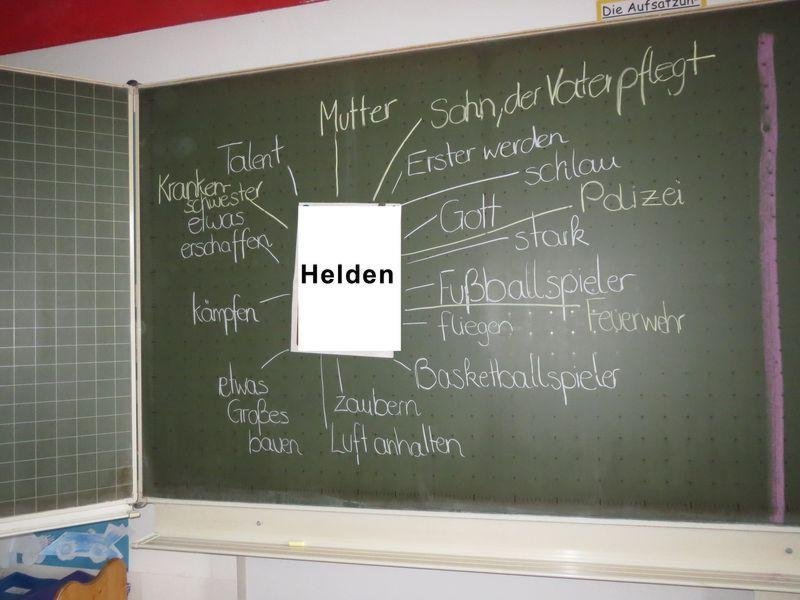 Die Aufsatzun-
Mutter
Sohn, der Vater pflegt
Talent
Erster werden
schlau
Kranken-
schwester
Gott
Polizei
etwas
erschaffen
stark
Helden
Fußballspieler
kämpfen
fliegen
Feuerwehr
Basketballspieler
etwas
Großes
bauen
zaubern
Luft anhalten